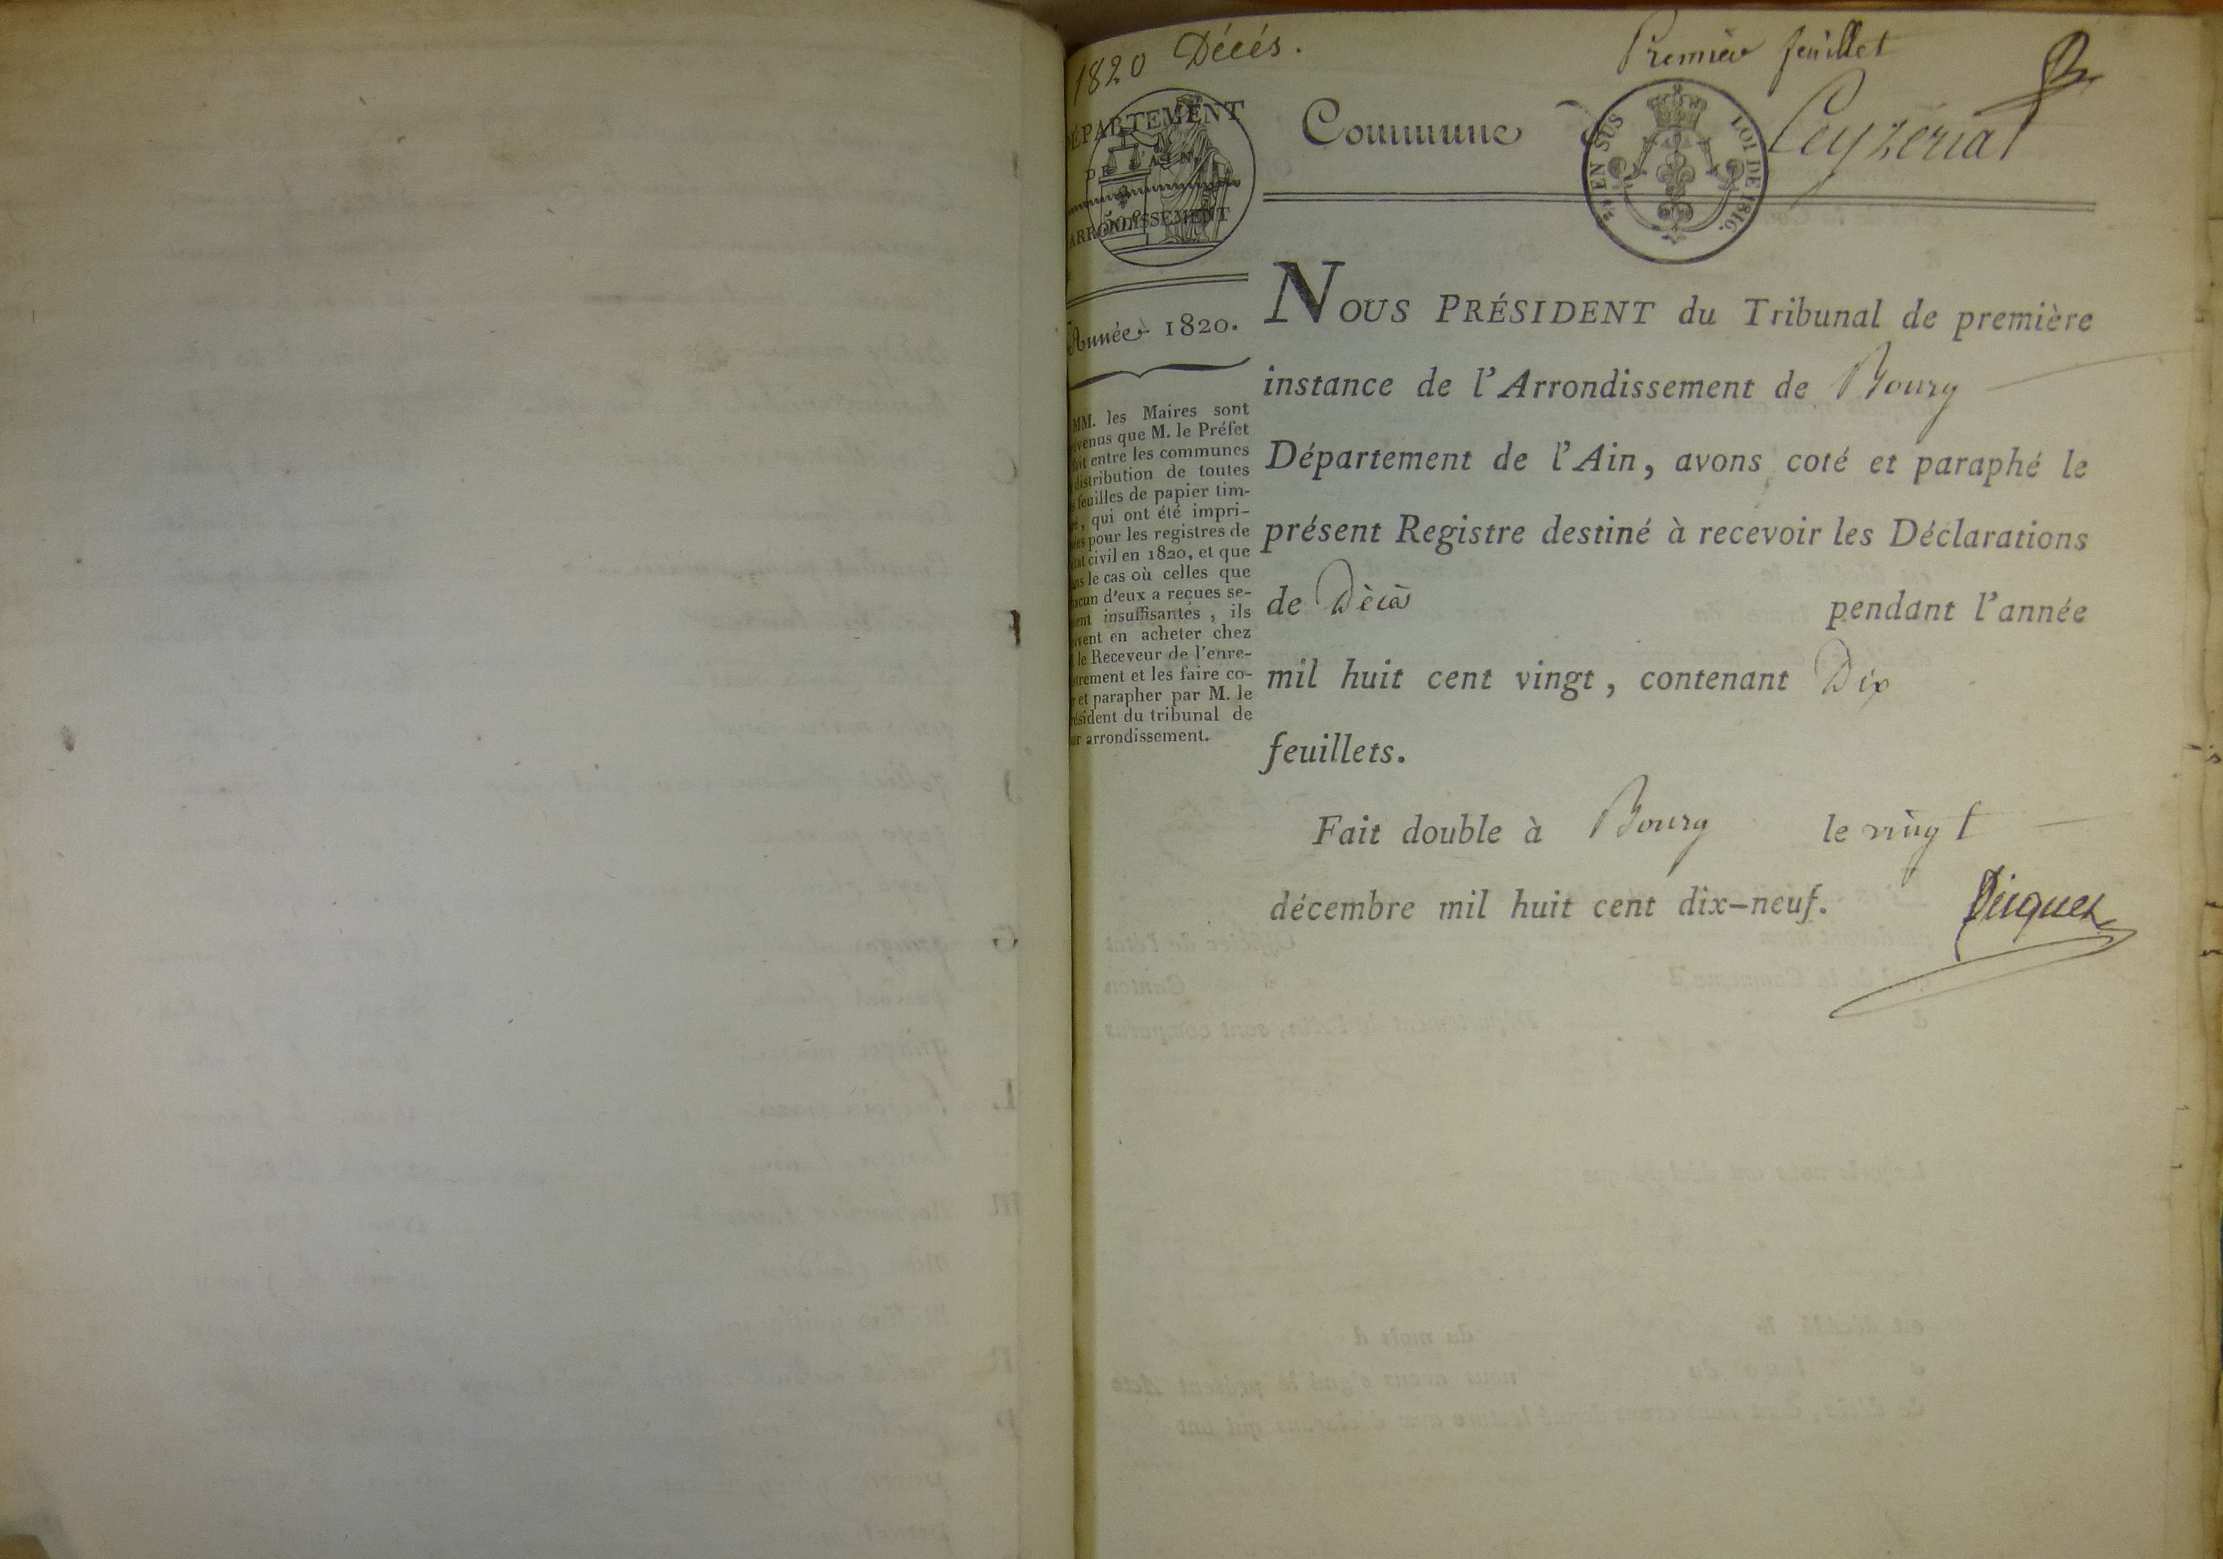 1820 Décés.
Premier feuillet
DÉPARTEMENT
DE L'AIN.
ARRONDISSEMENT
Commune
Ceyzeriat
EN SUS
LOI DE 1816.
Année 1820.
MM. les Maires sont
que M. le Préfet
entre les communes
distribution de toutes
feuilles de papier tim-
, qui ont été impri-
pour les registres de
civil en 1820, et que
le cas où celles que
d'eux a reçues se-
insuffisantes, ils
en acheter chez
le Receveur de l'enre-
et les faire co-
et parapher par M. le
du tribunal de
arrondissement.
NOUS PRÉSIDENT du Tribunal de première
instance de l'Arrondissement de Bourg
Département de l'Ain, avons coté et paraphé le
présent Registre destiné à recevoir les Déclarations
de Décès pendant l'année
mil huit cent vingt, contenant Dix
feuillets.
Fait double à Bourg le vingt
décembre mil huit cent dix-neuf.